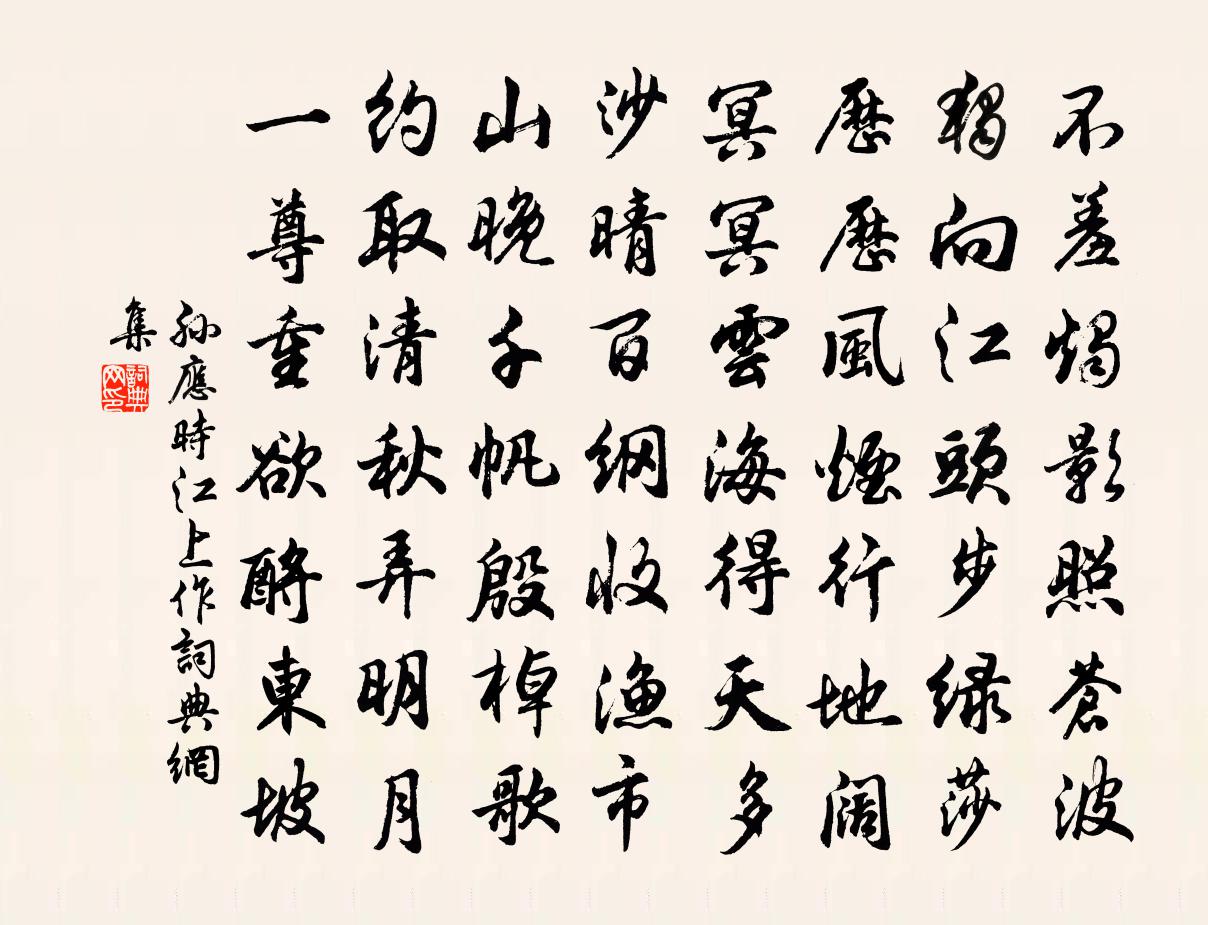 不羞燭影照蒼波
獨向江頭步緑莎
歷歷風煙行地闊
冥冥雲海得天多
沙晴百網收漁市
山晚千帆殷棹歌
約取清秋弄明月
一尊重欲酹東坡
孫應時江上作詞典網
集
詞典
网印